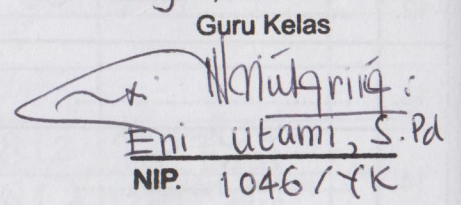 Guru Kelas
Eni utami, S.Pd
NIP. 1046/YK